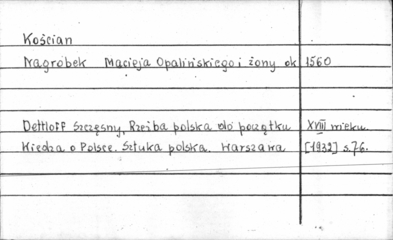 Kościan
Nagrobek Macieja Opalińskiego i żony ok 1560
Dettloff Szczęsny, Rzeźba polska do początku XVIII wieku.
Wiedza o Polsce. Sztuka polska. Warszawa [1932] s.76.